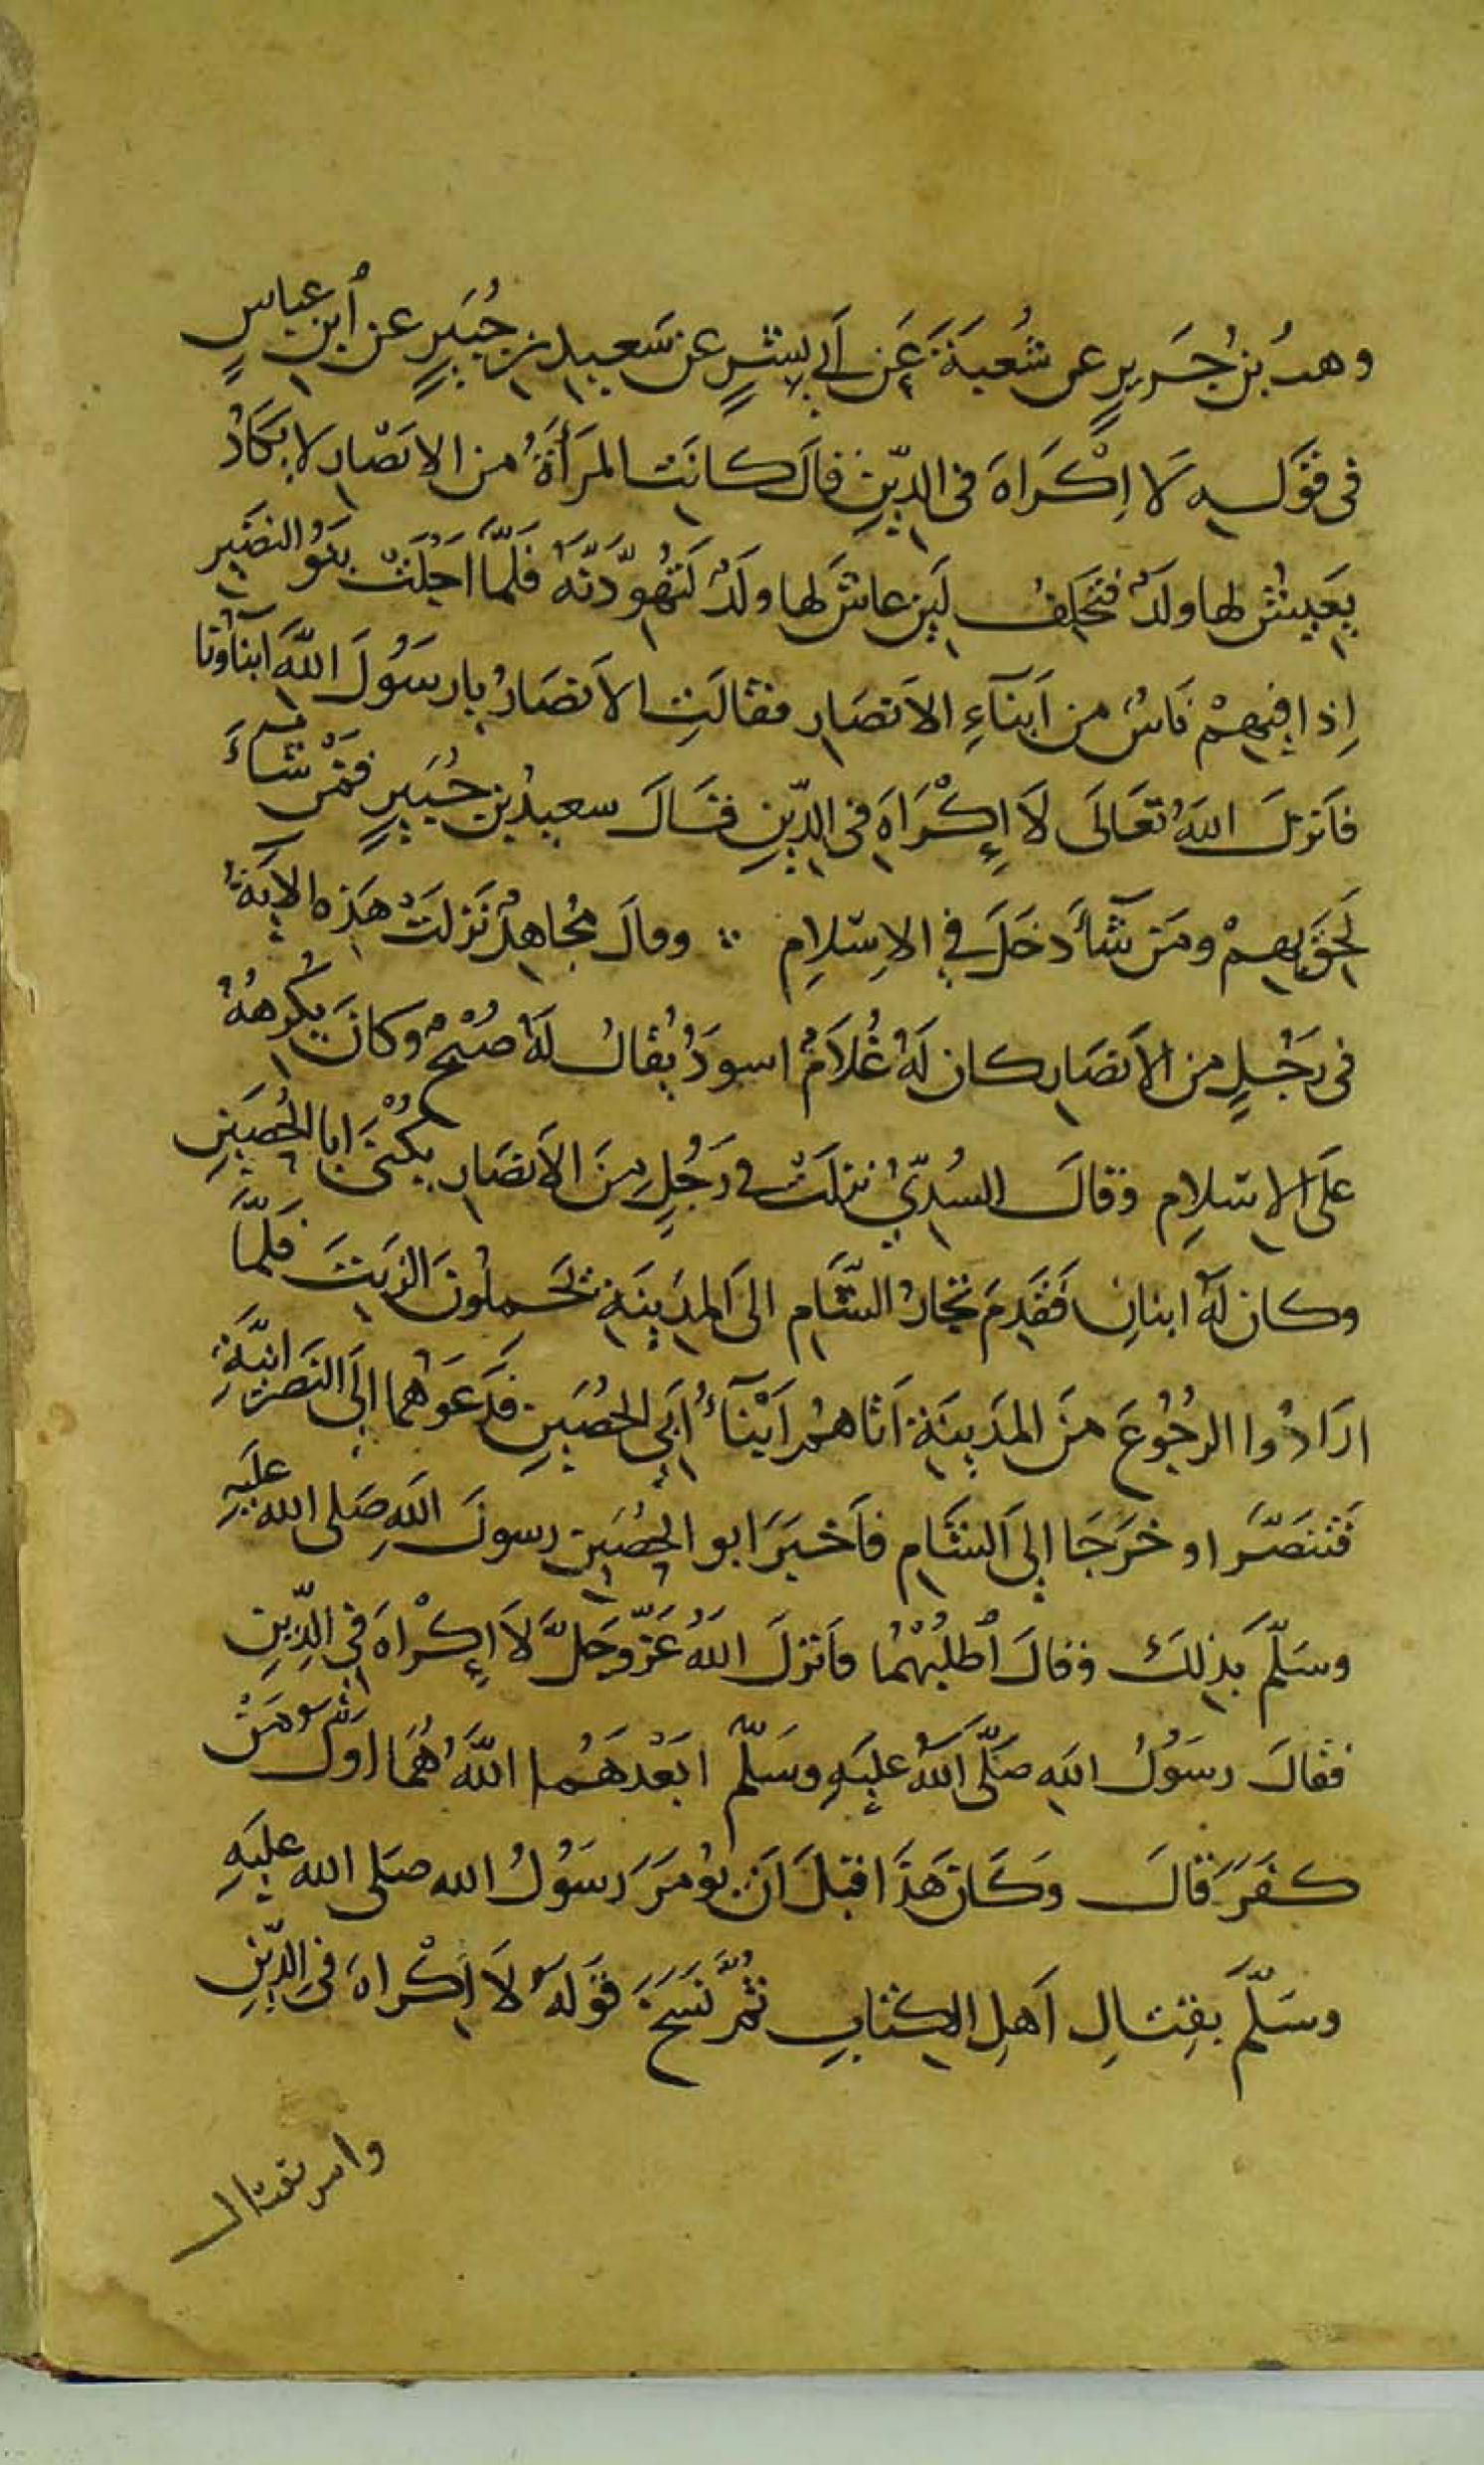 وهبُ بنُ جَرِيرٍ عن شُعبَةَ عَن اَبي بِشرٍ عن سَعِيدِ بنِ جُبَيرٍ عن اُبنِ عباسٍ
في قَولِهِ لَا اِكْرَاهَ في الدِّينِ قالَ كانَت المرَأةُ من الانصَارِ لا يَكَادُ
يَعِيشُ لها ولَدٌ فتحلِفُ لَئِن عاشَ لها ولَدٌ لَتُهَوِّدَنَّهُ فَلَمَّا اُجلِيَتْ بَنُو النضَيرِ
اِذا فِيهِمْ نَاسٌ من اَبنَآءِ الاَنصَارِ فقالَتِ الاَنصَارُ يا رسَوُلَ اللَّهِ ابنآؤنا
فاَنزلَ اللهُ تَعَالَى لَا إِكْرَاهَ في الدِّينِ فقَالَ سعيدُ بن جُبَيرٍ فمَنْ شَاءَ
لَحِقَ بهِمْ ومَن شَآءَ دخَلَ في الاِسلامِ ∴ وقالَ مُجاهِدٌ نَزلَتْ هَذِهِ الايَةُ
في رَجُلٍ من الاَنصَارِ كان لَهُ غُلَامٌ اسودُ يُقالُ لَهُ صُبْحٌ وكانَ يُكرِهُهُ
عَلَى الاِسلامِ وقالَ السُدِّيُّ نزلَتْ في رَجُلٍ مِنَ الاَنصَارِ يُكْنَى ابا الحُصَينِ
وكان لَهُ ابنانِ فَقَدِمَ تجارُ الشَّامِ الى المدِينَةِ يَحمِلُونَ الزيتَ فَلَمَّا
ارَادُوا الرجُوُعَ مِنَ المدَيِنَةِ اَتاهُمُ اَبْنَآءُ اَبَي الحُصَينِ فَدَعَوْهُما إِلَى النَصَرْانِيَّةِ
فَتَنَصَّرَا وخرَجَا إِلى الشَامِ فاَخبَرَ ابو الحُصَينِ رسولَ اللهِ صَلى الله عليَهِ
وسَلَّمَ بذَلِكَ فقالَ اُطلُبْهُما فاَنزلَ اللهُ عَزَّوجَلَّ لَا إِكْرَاهَ في الدِّينِ
فقالَ رسَوُلُ اللهِ صَلَّى اللهُ علَيَهِ وسَلَّمَ ابَعْدَهُما اللَّهُ هُمَا اوَلُ مَنْ
كفَرَ قالَ وَكَانَ هَذَا قبَلَ اَنْ يُومَرَ رَسَوُلُ الله صَلى الله علَيَهِ
وسَلَّمَ بِقِتالِ اَهلِ الكِتابِ ثُمَّ نُسَخَ قَولَهُ لَا إِكْرَاهَ في الدِّينِ
وامر بقتال